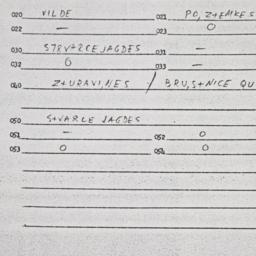 020 VILDE 021 PO,Z+EMKES
022 — 023 O
030 STRVARCEJAGDES 031 —
032 O 033 —
040 Z+URAVINES / BRU,S+NICE QU
050 S+VARCE JAGDES
051 — 052 O
053 O 054 O